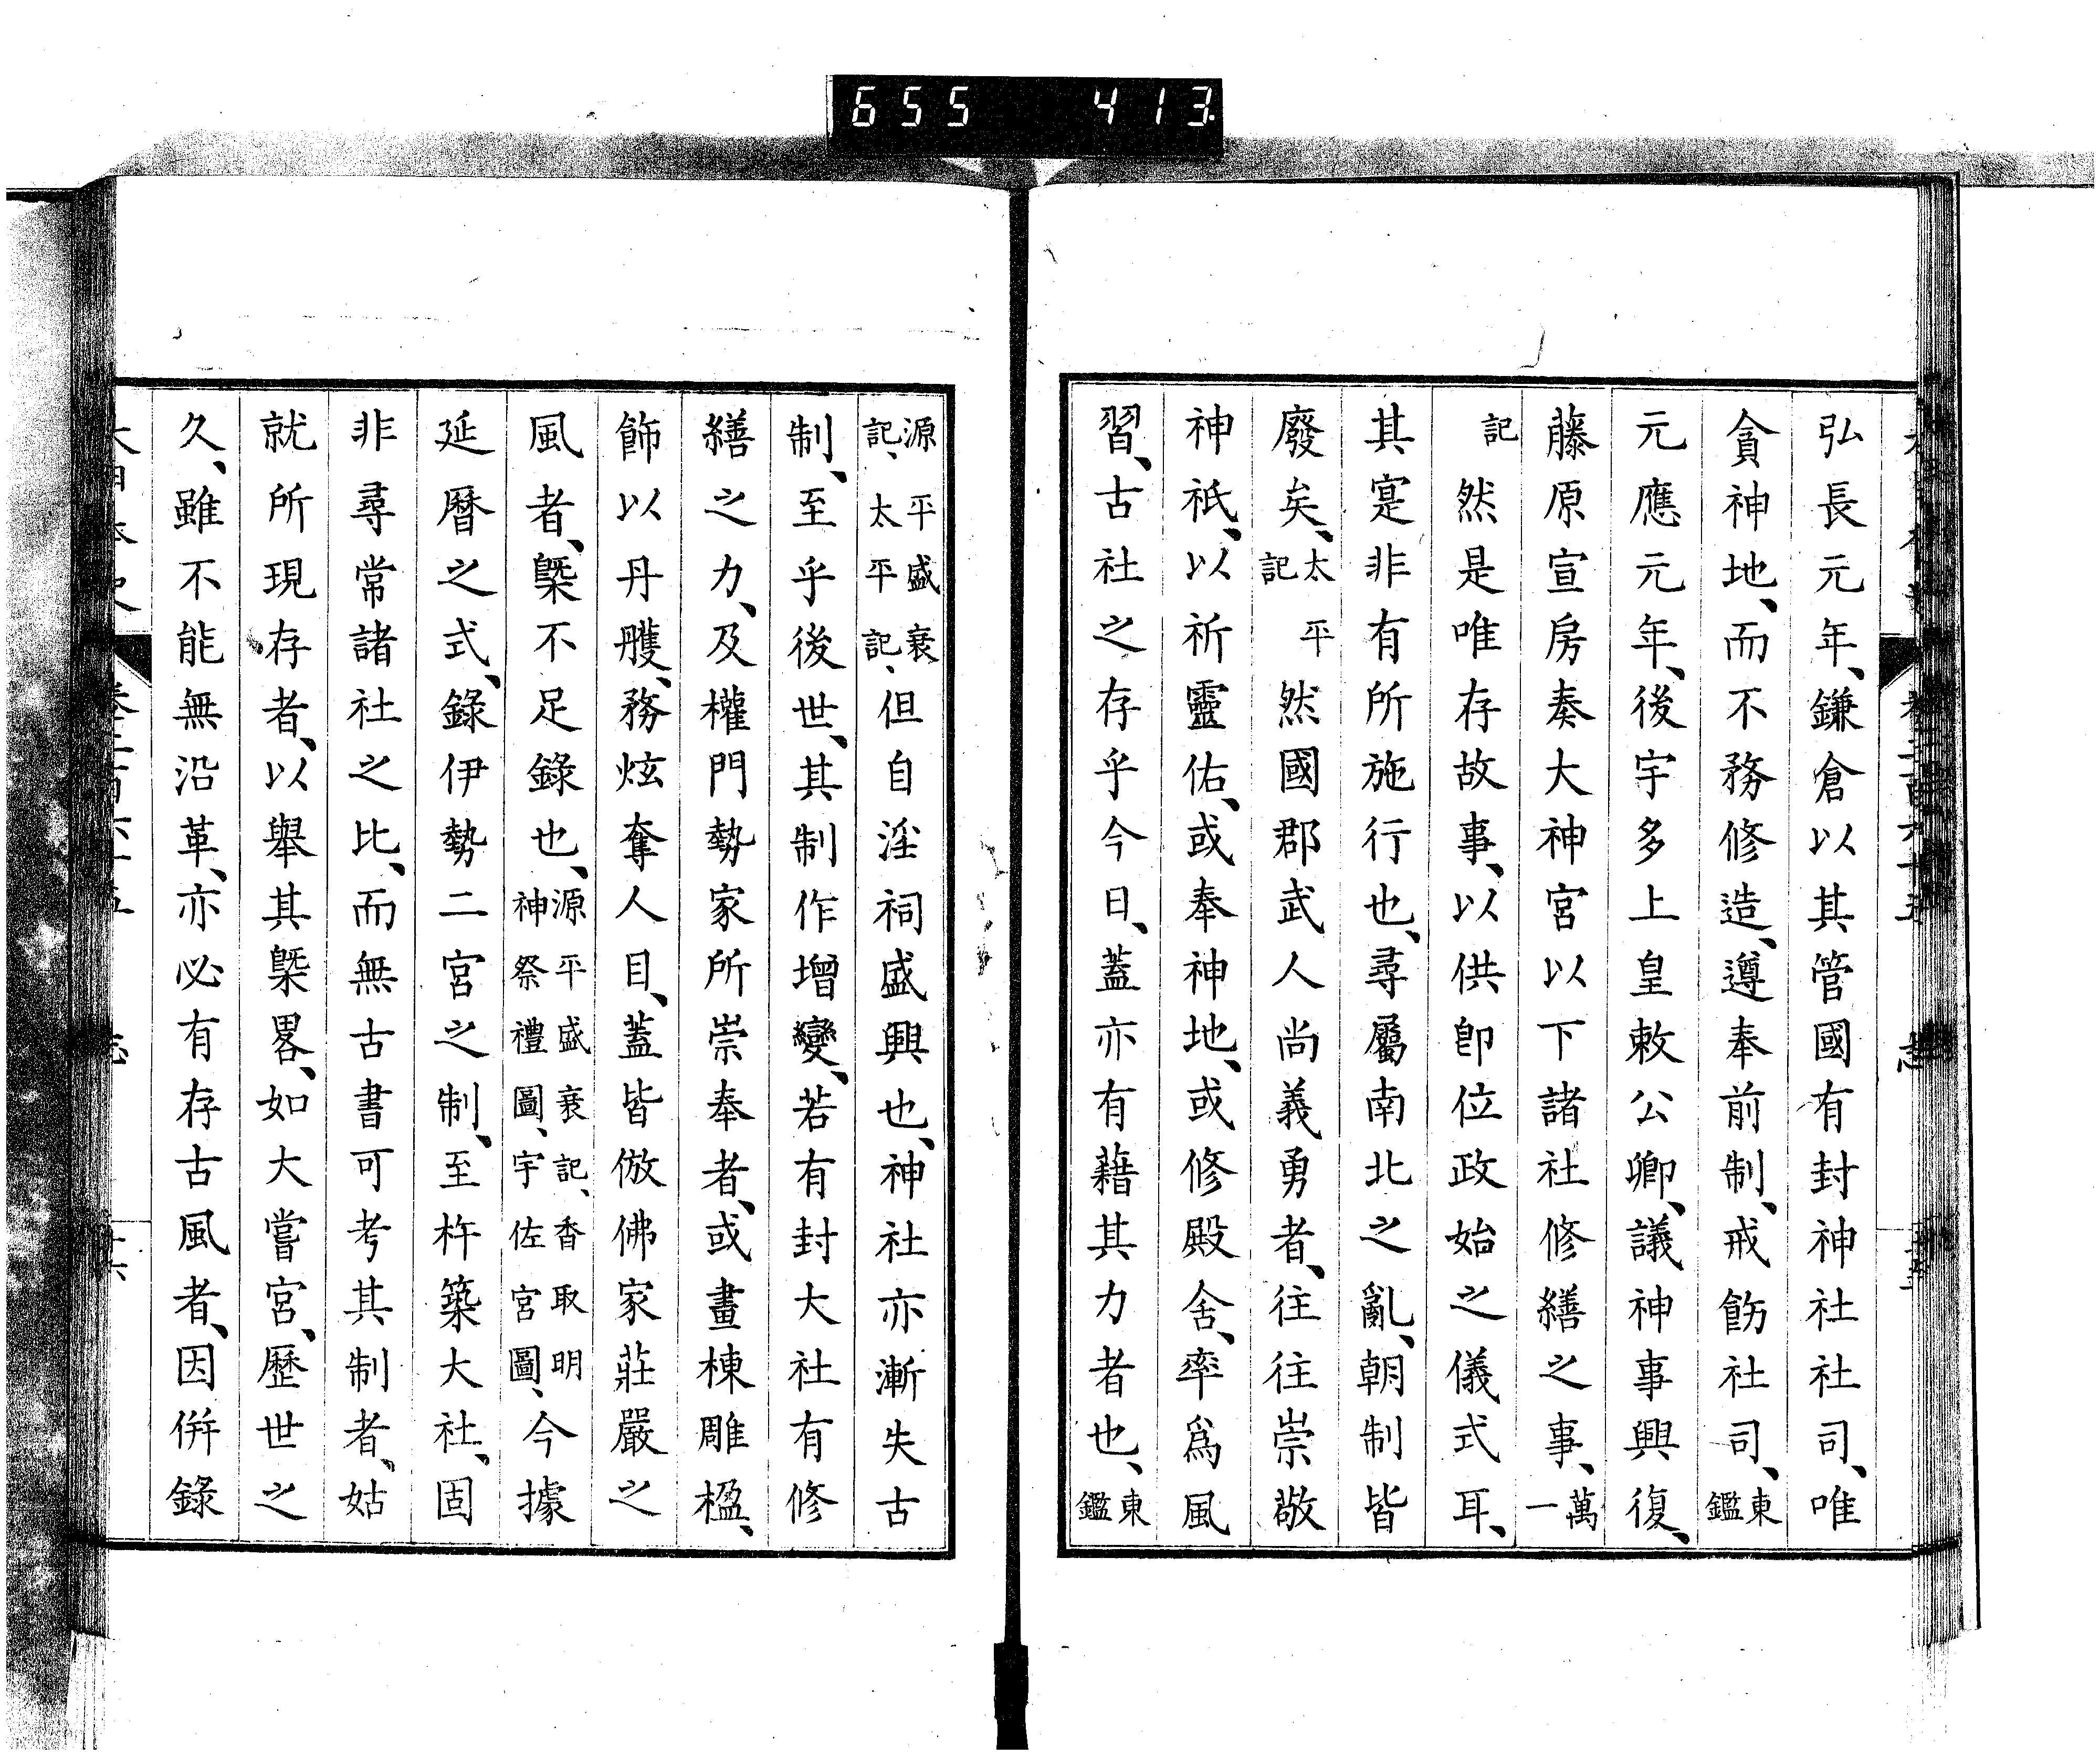 655 413
弘長元年、鎌倉以其管國有封神社社司、唯
貪神地、而不務修造、遵奉前制、戒飭社司、東鑑
元應元年、後宇多上皇敕公卿、議神事興復、
藤原宣房奏大神宮以下諸社修繕之事、萬一
記然是唯存故事、以供卽位政始之儀式耳、
其寔非有所施行也、尋屬南北之亂、朝制皆
廢矣、太平記然國郡武人尚義勇者、往往崇敬
神祇、以祈靈佑、或奉神地、或修殿舍、率爲風
習、古社之存乎今日、蓋亦有藉其力者也、東鑑
源平盛衰記、太平記、但自淫祠盛興也、神社亦漸失古
制、至乎後世、其制作增變、若有封大社有修
繕之力、及權門勢家所崇奉者、或畫棟雕楹、
飾以丹雘、務炫奪人目、蓋皆倣佛家莊嚴之
風者、槩不足錄也、源平盛衰記、香取明神祭禮圖、宇佐宮圖、今據
延曆之式、錄伊勢二宮之制、至杵築大社、固
非尋常諸社之比、而無古書可考其制者、姑
就所現存者、以舉其槩畧、如大嘗宮、歷世之
久、雖不能無沿革、亦必有存古風者、因倂錄